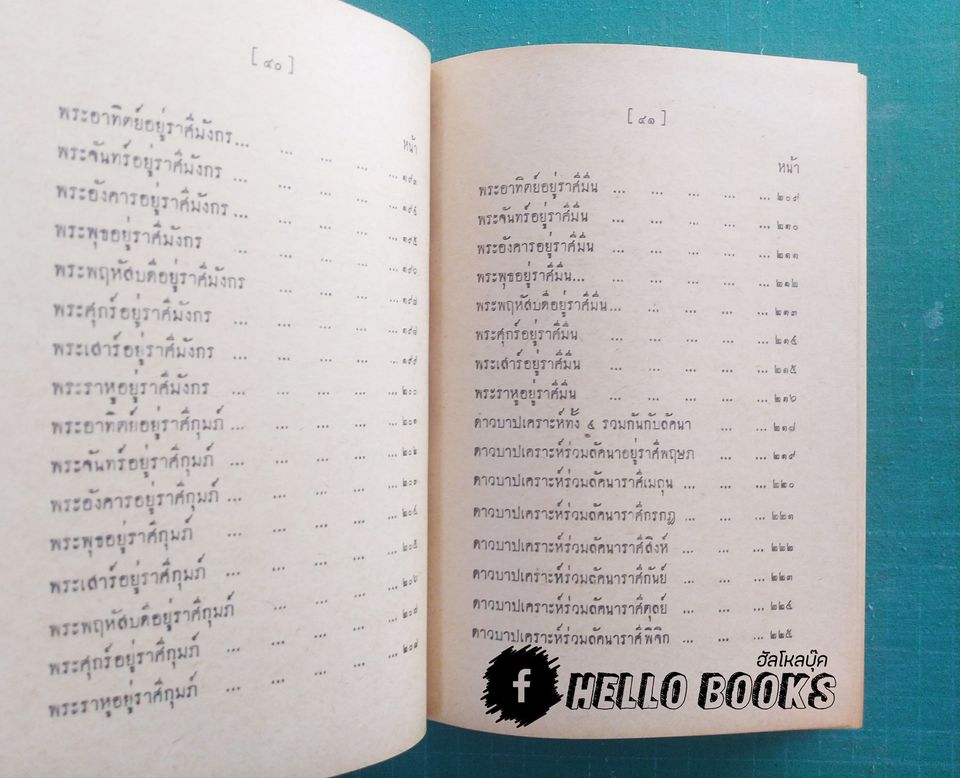 [ ๔๐ ]
หน้า
พระอาทิตย์อยู่ราศีมังกร ... ... ... ... ... ๑๙๓
พระจันทร์อยู่ราศีมังกร ... ... ... ... ... ๑๙๔
พระอังคารอยู่ราศีมังกร ... ... ... ... ... ๑๙๕
พระพุธอยู่ราศีมังกร ... ... ... ... ... ๑๙๖
พระพฤหัสบดีอยู่ราศีมังกร ... ... ... ... ๑๙๗
พระศุกร์อยู่ราศีมังกร ... ... ... ... ... ๑๙๘
พระเสาร์อยู่ราศีมังกร ... ... ... ... ... ๑๙๙
พระราหูอยู่ราศีมังกร ... ... ... ... ... ๒๐๐
พระอาทิตย์อยู่ราศีกุมภ์ ... ... ... ... ... ๒๐๑
พระจันทร์อยู่ราศีกุมภ์ ... ... ... ... ... ๒๐๒
พระอังคารอยู่ราศีกุมภ์ ... ... ... ... ... ๒๐๓
พระพุธอยู่ราศีกุมภ์ ... ... ... ... ... ๒๐๔
พระเสาร์อยู่ราศีกุมภ์ ... ... ... ... ... ๒๐๕
พระพฤหัสบดีอยู่ราศีกุมภ์ ... ... ... ... ๒๐๖
พระศุกร์อยู่ราศีกุมภ์ ... ... ... ... ... ๒๐๗
พระราหูอยู่ราศีกุมภ์ ... ... ... ... ... ๒๐๘
[ ๔๑ ]
หน้า
พระอาทิตย์อยู่ราศีมีน ... ... ... ... ... ๒๐๙
พระจันทร์อยู่ราศีมีน ... ... ... ... ... ๒๑๐
พระอังคารอยู่ราศีมีน ... ... ... ... ... ๒๑๑
พระพุธอยู่ราศีมีน... ... ... ... ... ๒๑๒
พระพฤหัสบดีอยู่ราศีมีน... ... ... ... ... ๒๑๓
พระศุกร์อยู่ราศีมีน ... ... ... ... ... ๒๑๔
พระเสาร์อยู่ราศีมีน ... ... ... ... ... ๒๑๕
พระราหูอยู่ราศีมีน ... ... ... ... ... ๒๑๖
ดาวบาปเคราะห์ทั้ง ๔ รวมกันกับลัคนา ... ... ๒๑๗
ดาวบาปเคราะห์ร่วมลัคนาอยู่ราศีพฤษภ ... ... ๒๑๙
ดาวบาปเคราะห์ร่วมลัคนาราศีเมถุน ... ... ... ๒๒๐
ดาวบาปเคราะห์ร่วมลัคนาราศีกรกฎ ... ... ... ๒๒๑
ดาวบาปเคราะห์ร่วมลัคนาราศีสิงห์ ... ... ... ๒๒๒
ดาวบาปเคราะห์ร่วมลัคนาราศีกันย์ ... ... ... ๒๒๓
ดาวบาปเคราะห์ร่วมลัคนาราศีตุลย์ ... ... ... ๒๒๔
ดาวบาปเคราะห์ร่วมลัคนาราศีพิจิก ... ... ... ๒๒๕
ฮัลโหลบุ๊ค
f HELLO BOOKS